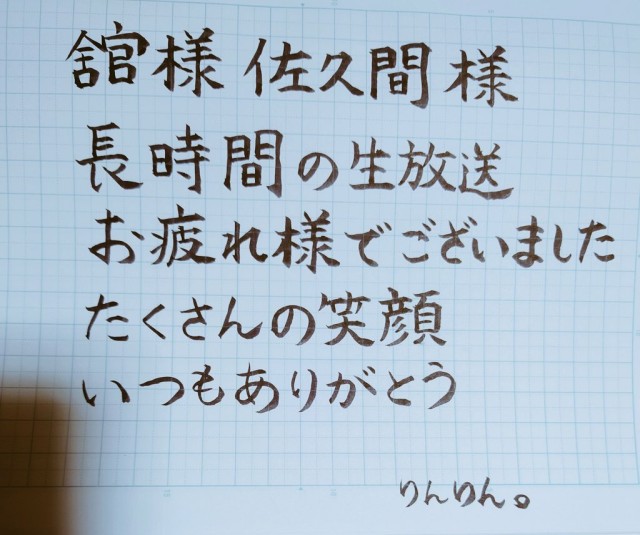 舘様 佐久間様
長時間の生放送
お疲れ様でございました
たくさんの笑顔
いつもありがとう
りんりん。